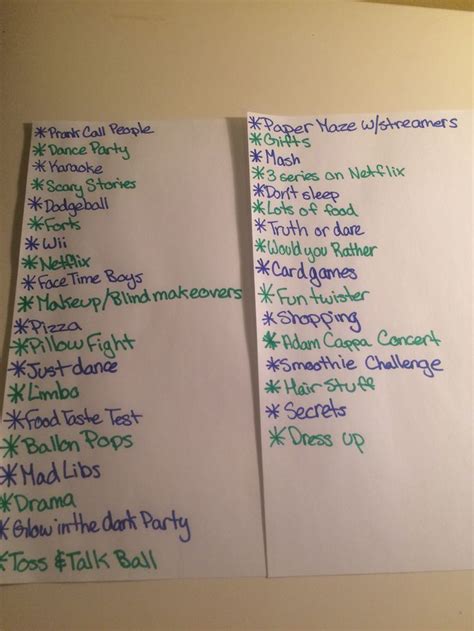 *Prank Call People
*Dance Party
*Karaoke
*Scary Stories
*Dodgeball
*Forts
*Wii
*Netflix
*FaceTime Boys
*Makeup/Blind makeovers
*Pizza
*Pillow Fight
*Just dance
*Limbo
*Food Taste Test
*Ballon Pops
*Mad Libs
*Drama
*Glow in the dark Party
*Toss & Talk Ball
*Paper Maze w/streamers
*Gifts
*Mash
*3 series on Netflix
*Don't sleep
*Lots of food
*Truth or dare
*Would you Rather
*Card games
*Fun twister
*Shopping
*Adam Cappa Concert
*Smoothie Challenge
*Hair Stuff
*Secrets
*Dress up